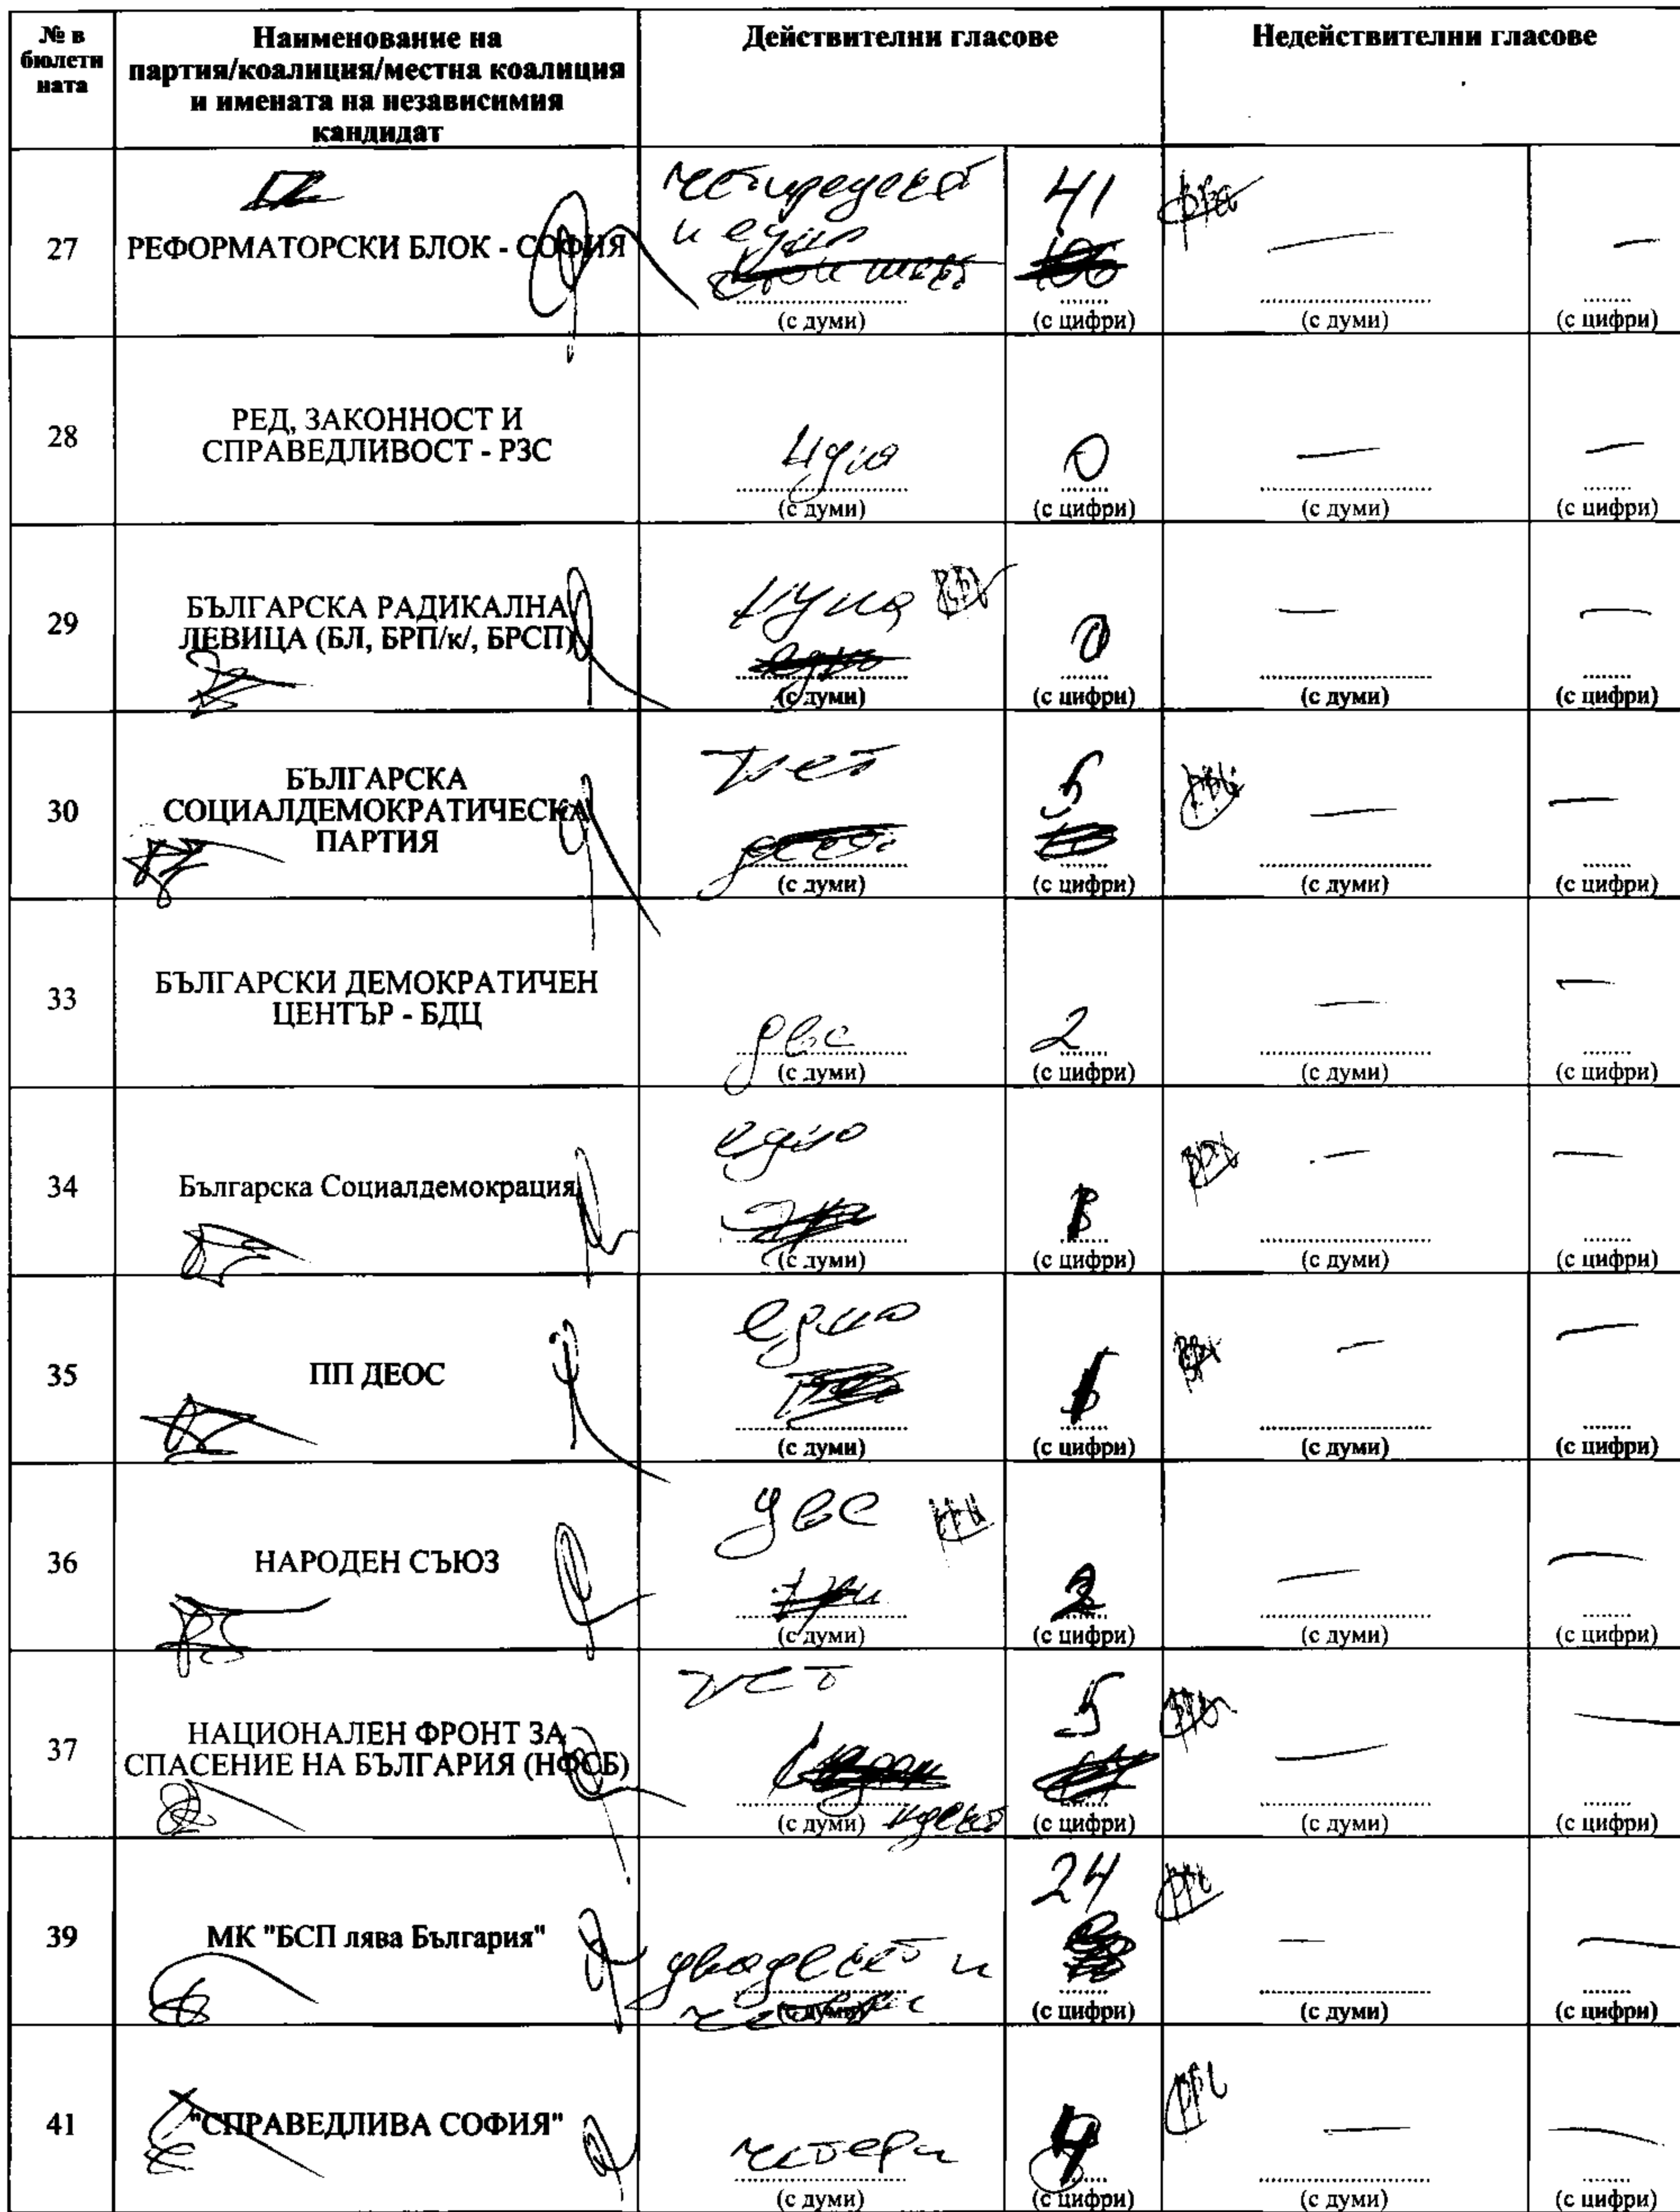 № в
бюлети
ната
Наименование на
партия/коалиция/местна коалиция
и имената на независимия
кандидат
Действителни гласове
Недействителни гласове
27
РЕФОРМАТОРСКИ БЛОК - СОФИЯ
четиридесет
и един
41
(с думи)
(с цифри)
(с думи)
(с цифри)
28
РЕД, ЗАКОННОСТ И
СПРАВЕДЛИВОСТ - РЗС
0
(с думи)
(с цифри)
(с думи)
(с цифри)
29
БЪЛГАРСКА РАДИКАЛНА
ЛЕВИЦА (БЛ, БРП/к/, БРСП)
нула
0
(с думи)
(с цифри)
(с думи)
(с цифри)
30
БЪЛГАРСКА
СОЦИАЛДЕМОКРАТИЧЕСКА
ПАРТИЯ
пет
5
(с думи)
(с цифри)
(с думи)
(с цифри)
33
БЪЛГАРСКИ ДЕМОКРАТИЧЕН
ЦЕНТЪР - БДЦ
две
2
(с думи)
(с цифри)
(с думи)
(с цифри)
34
Българска Социалдемокрация
едно
1
(с думи)
(с цифри)
(с думи)
(с цифри)
35
ПП ДЕОС
едно
1
(с думи)
(с цифри)
(с думи)
(с цифри)
36
НАРОДЕН СЪЮЗ
две
2
(с думи)
(с цифри)
(с думи)
(с цифри)
37
НАЦИОНАЛЕН ФРОНТ ЗА
СПАСЕНИЕ НА БЪЛГАРИЯ (НФСБ)
пет
5
(с думи)
(с цифри)
(с думи)
(с цифри)
39
МК "БСП лява България"
двадесет и
четири
24
(с думи)
(с цифри)
(с думи)
(с цифри)
41
"СПРАВЕДЛИВА СОФИЯ"
четери
4
(с думи)
(с цифри)
(с думи)
(с цифри)